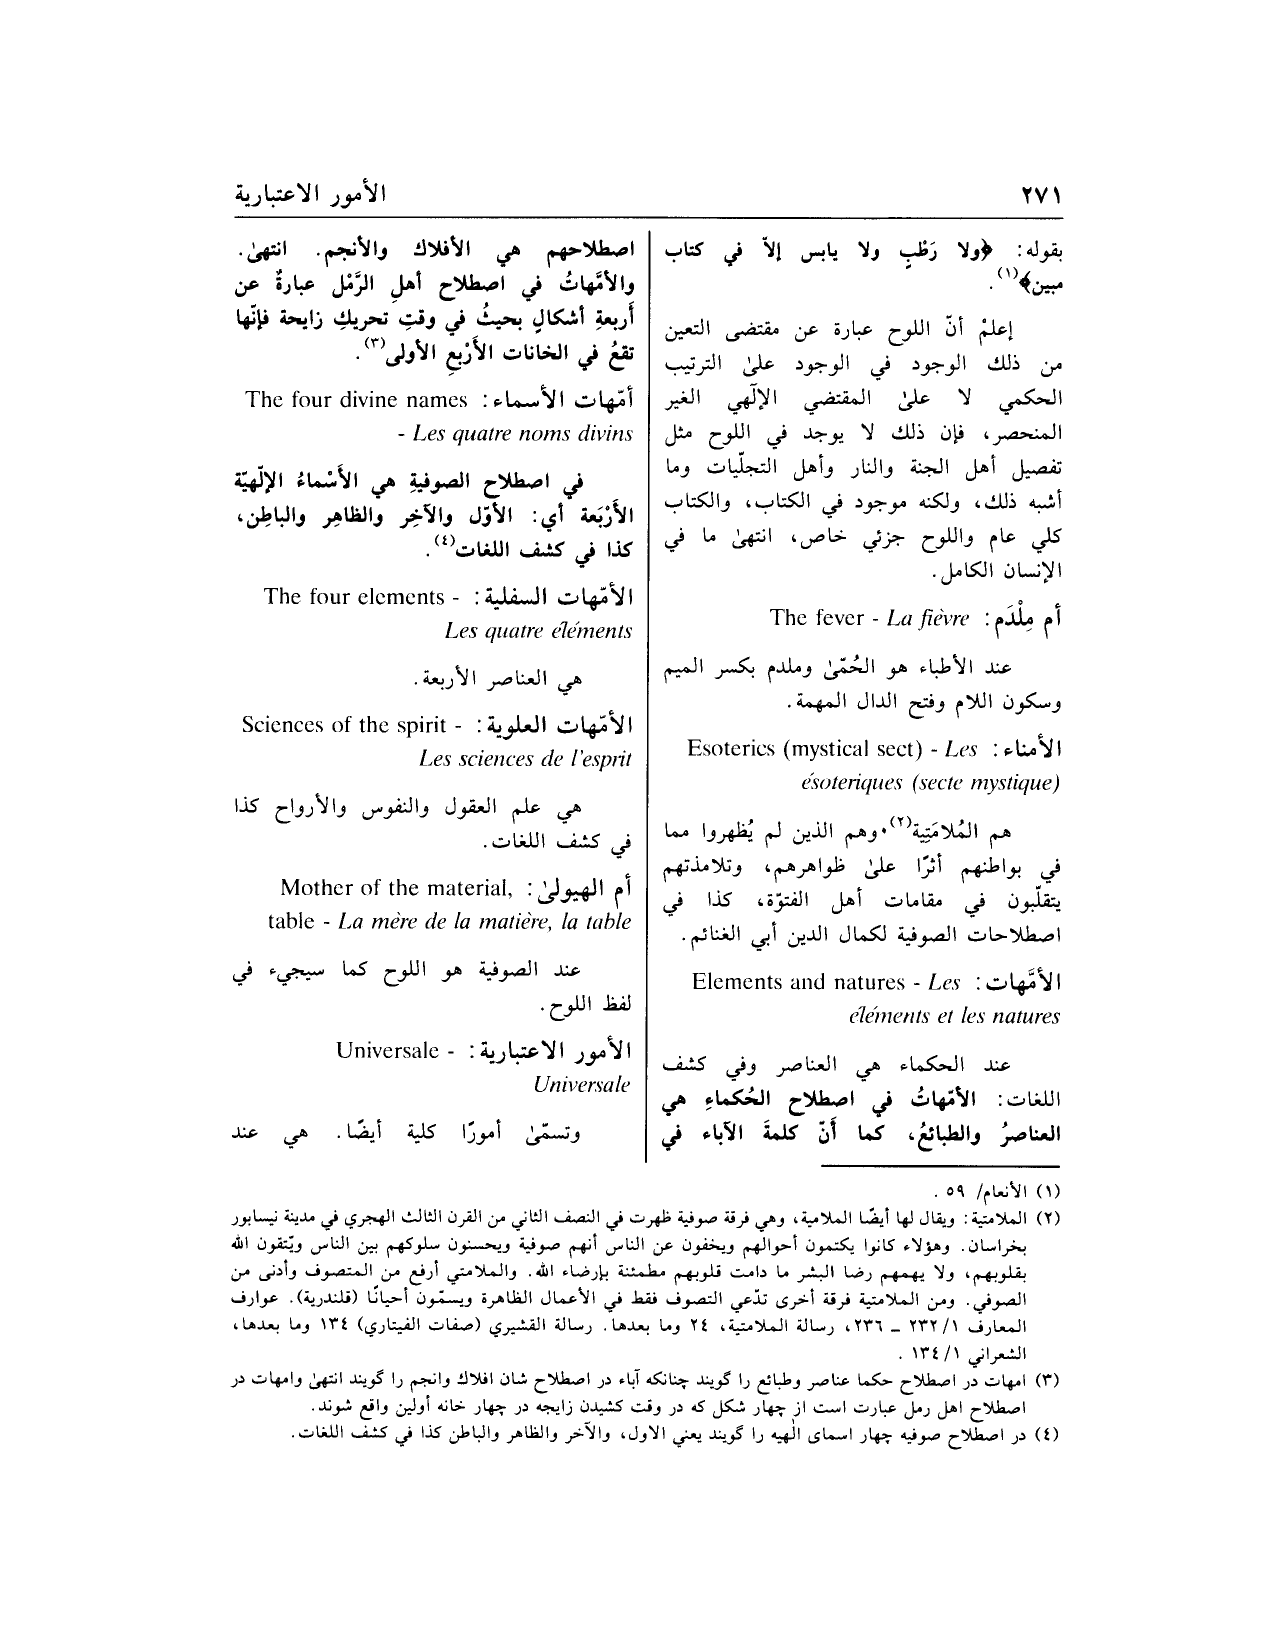 ٢٧١
الأمور الاعتبارية
بقوله: ﴿ولا رَطْبٍ ولا يابس إلاّ في كتاب
مبين﴾(١).
إعلمْ أنّ اللوح عبارة عن مقتضى التعين
من ذلك الوجود في الوجود علىٰ الترتيب
الحكمي لا علىٰ المقتضي الإلٓهي الغير
المنحصر، فإن ذلك لا يوجد في اللوح مثل
تفصيل أهل الجنة والنار وأهل التجلّيات وما
أشبه ذلك، ولكنه موجود في الكتاب، والكتاب
كلي عام واللوح جزئي خاص، انتهىٰ ما في
الإنسان الكامل.
أم مِلْدَم: The fever - La fièvre
عند الأطباء هو الحُمّىٰ وملدم بكسر الميم
وسكون اللام وفتح الدال المهمة.
الأمناء: Esoterics (mystical sect) - Les
ésoteriques (secte mystique)
هم المُلامَتِية(٢)٠وهم الذين لم يُظهروا مما
في بواطنهم أثرًا علىٰ ظواهرهم، وتلامذتهم
يتقلّبون في مقامات أهل الفتوّة، كذا في
اصطلاحات الصوفية لكمال الدين أبي الغنائم.
الأمَّهات: Elements and natures - Les
éléments et les natures
عند الحكماء هي العناصر وفي كشف
اللغات: الأمّهاتُ في اصطلاح الحُكماءِ هي
العناصرُ والطبائعُ، كما أَنّ كلمةَ الآباء في
اصطلاحهم هي الأفلاك والأنجم. انتهىٰ.
والأمَّهاتُ في اصطلاح أهلِ الرَّمْل عبارةٌ عن
أربعةِ أشكالٍ بحيثُ في وقتِ تحريكِ زايحة فإنّها
تقعُ في الخانات الأرْبعِ الأولى(٣).
أمّهات الأسماء: The four divine names
- Les quatre noms divins
في اصطلاح الصوفيةِ هي الأَسْماءُ الإلٓهيّة
الأرْبَعة أي: الأوّل والآخِر والظاهِر والباطِن،
كذا في كشف اللغات(٤).
الأمّهات السفلية: The four elements -
Les quatre éléments
هي العناصر الأربعة.
الأمّهات العلوية: Sciences of the spirit -
Les sciences de l'esprit
هي علم العقول والنفوس والأرواح كذا
في كشف اللغات.
أم الهيولىٰ: Mother of the material,
table - La mère de la matière, la table
عند الصوفية هو اللوح كما سيجيء في
لفظ اللوح.
الأمور الاعتبارية: Universale -
Universale
وتسمّىٰ أمورًا كلية أيضًا. هي عند
(١) الأنعام/ ٥٩ .
(٢) الملامتية: ويقال لها أيضًا الملامية، وهي فرقة صوفية ظهرت في النصف الثاني من القرن الثالث الهجري في مدينة نيسابور
بخراسان. وهؤلاء كانوا يكتمون أحوالهم ويخفون عن الناس أنهم صوفية ويحسنون سلوكهم بين الناس ويّتقون الله
بقلوبهم، ولا يهمهم رضا البشر ما دامت قلوبهم مطمئنة بإرضاء الله. والملامتي أرفع من المتصوف وأدنى من
الصوفي. ومن الملامتية فرقة أخرى تدّعي التصوف فقط في الأعمال الظاهرة ويسمّون أحيانًا (قلندرية). عوارف
المعارف ١/ ٢٣٢ ــ ٢٣٦، رسالة الملامتية، ٢٤ وما بعدها. رسالة القشيري (صفات الفيتاري) ١٣٤ وما بعدها،
الشعراني ١/ ١٣٤ .
(٣) امهات در اصطلاح حكما عناصر وطبائع را گويند چنانكه آباء در اصطلاح شان افلاك وانجم را گويند انتهىٰ وامهات در
اصطلاح اهل رمل عبارت است از چهار شكل كه در وقت كشيدن زايجه در چهار خانه أولين واقع شوند.
(٤) در اصطلاح صوفيه چهار اسماى الٰهيه را گويند يعني الاول، والآخر والظاهر والباطن كذا في كشف اللغات.